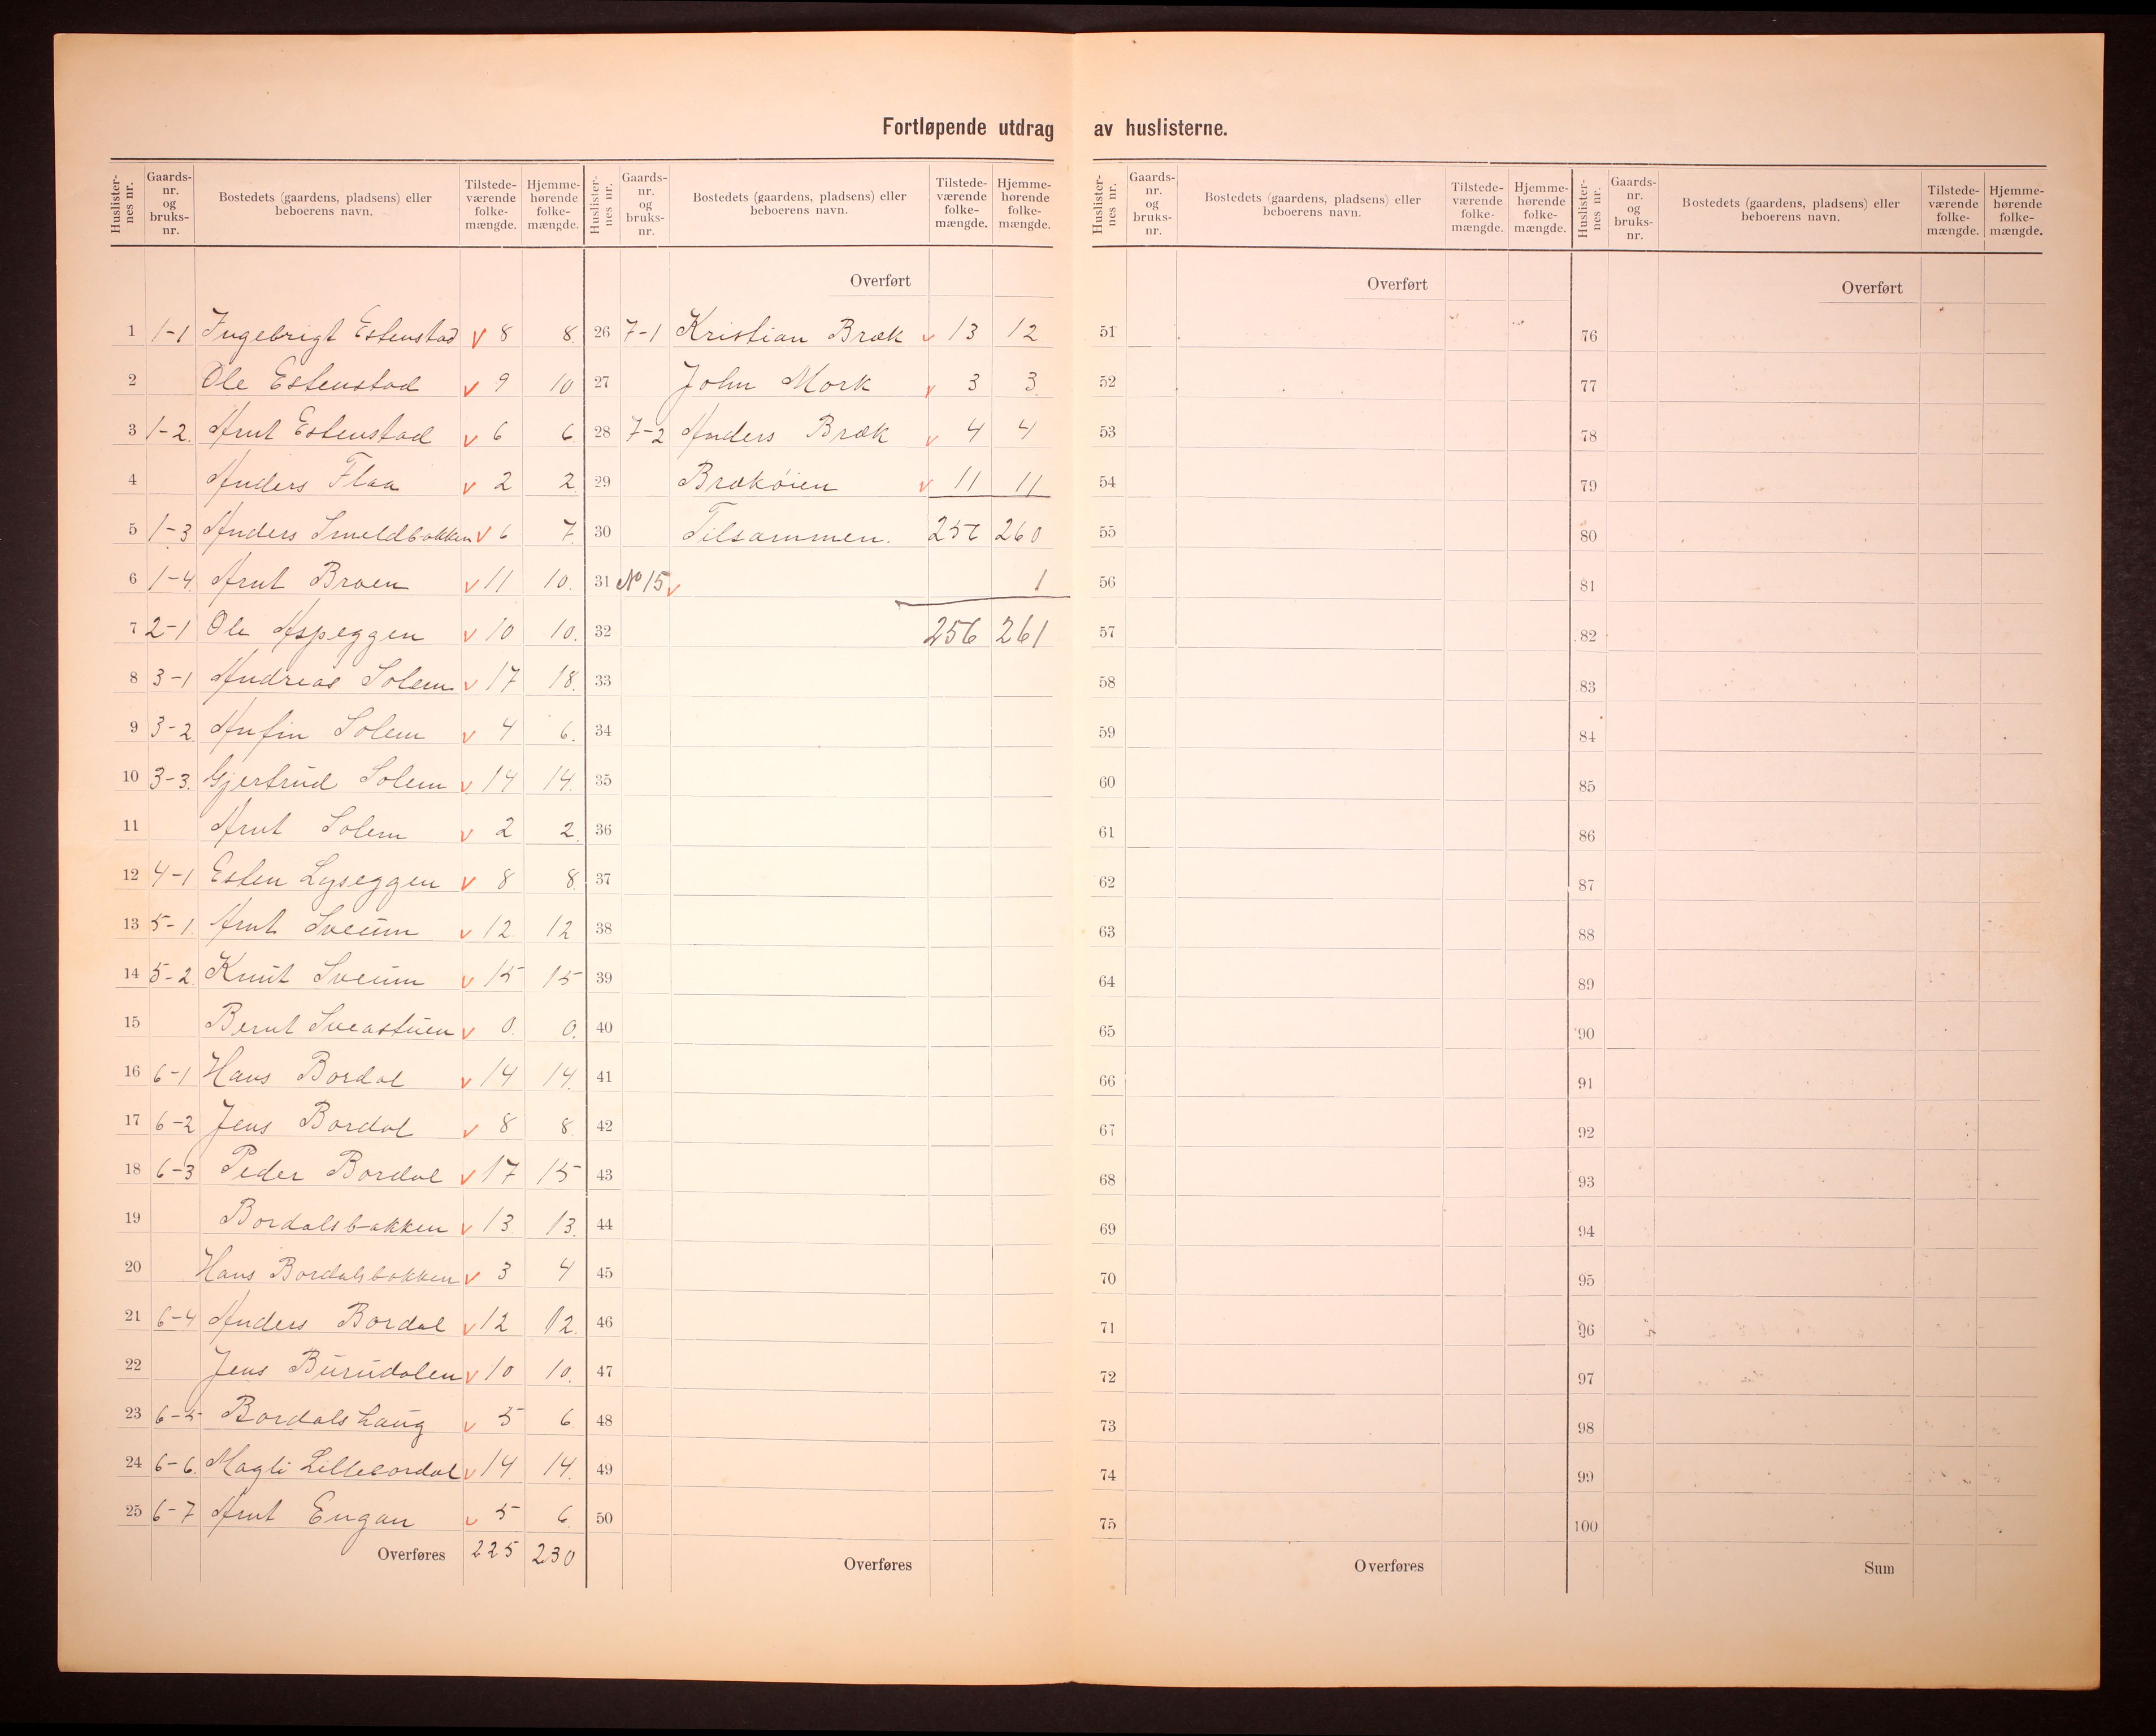 Fortløpende utdrag av huslisterne.
Huslister-nes nr. Gaards-nr. og bruks-nr. Bostedets (gaardens, pladsens) eller beboerens navn. Tilstede-værende folke-mængde. Hjemme-hørende folke-mængde.
1 1-1 Ingebrigt Estenstad v 8 8.
2 Ole Estenstad v 9 10
3 1-2. Arnt Estenstad v 6 6
4 Anders Flaa v 2 2
5 1-3 Anders Smeldbakken v 6 7.
6 1-4. Arnt Broen v 11 10.
7 2-1 Ole Aspeggen v 10 10.
8 3-1 Andreas Solem v 17 18.
9 3-2. Anfin Solem v 4 6.
10 3-3. Gjertrud Solem v 14 14.
11 Arnt Solem v 2 2.
12 4-1 Esten Lyseggen v 8 8.
13 5-1. Arnt Sveum v 12 12
14 5-2. Knut Sveum v 15 15
15 Bernt Sveastuen v 0. 0.
16 6-1 Hans Bordal v 14 14.
17 6-2 Jens Bordal v 8 8.
18 6-3 Peder Bordal v 17 15
19 Bordalsbakken v 13 13.
20 Hans Bordalsbakken v 3 4
21 6-4 Anders Bordal v 12 12.
22 Jens Burudalen v 10 10.
23 6-5 Bordalshaug v 5 6
24 6-6. Magli Lillebordal v 14 14.
25 6-7 Arnt Engan v 5 6
Overføres 225 230
Huslister-nes nr. Gaards-nr. og bruks-nr. Bostedets (gaardens, pladsens) eller beboerens navn. Tilstede-værende folke-mængde. Hjemme-hørende folke-mængde.
Overført
26 7-1 Kristian Bræk v 13 12
27 John Mork v 3 3.
28 7-2 Anders Bræk v 4 4
29 Brækøien v 11 11
30 Tilsammen. 256 260
31 No 15 v 1
32 256 261
33
34
35
36
37
38
39
40
41
42
43
44
45
46
47
48
49
50
Overføres
Huslister-nes nr. Gaards-nr. og bruks-nr. Bostedets (gaardens, pladsens) eller beboerens navn. Tilstede-værende folke-mængde. Hjemme-hørende folke-mængde.
Overført
51
52
53
54
55
56
57
58
59
60
61
62
63
64
65
66
67
68
69
70
71
72
73
74
75
Overføres
Huslister-nes nr. Gaards-nr. og bruks-nr. Bostedets (gaardens, pladsens) eller beboerens navn. Tilstede-værende folke-mængde. Hjemme-hørende folke-mængde.
Overført
76
77
78
79
80
81
82
83
84
85
86
87
88
89
90
91
92
93
94
95
96
97
98
99
100
Sum